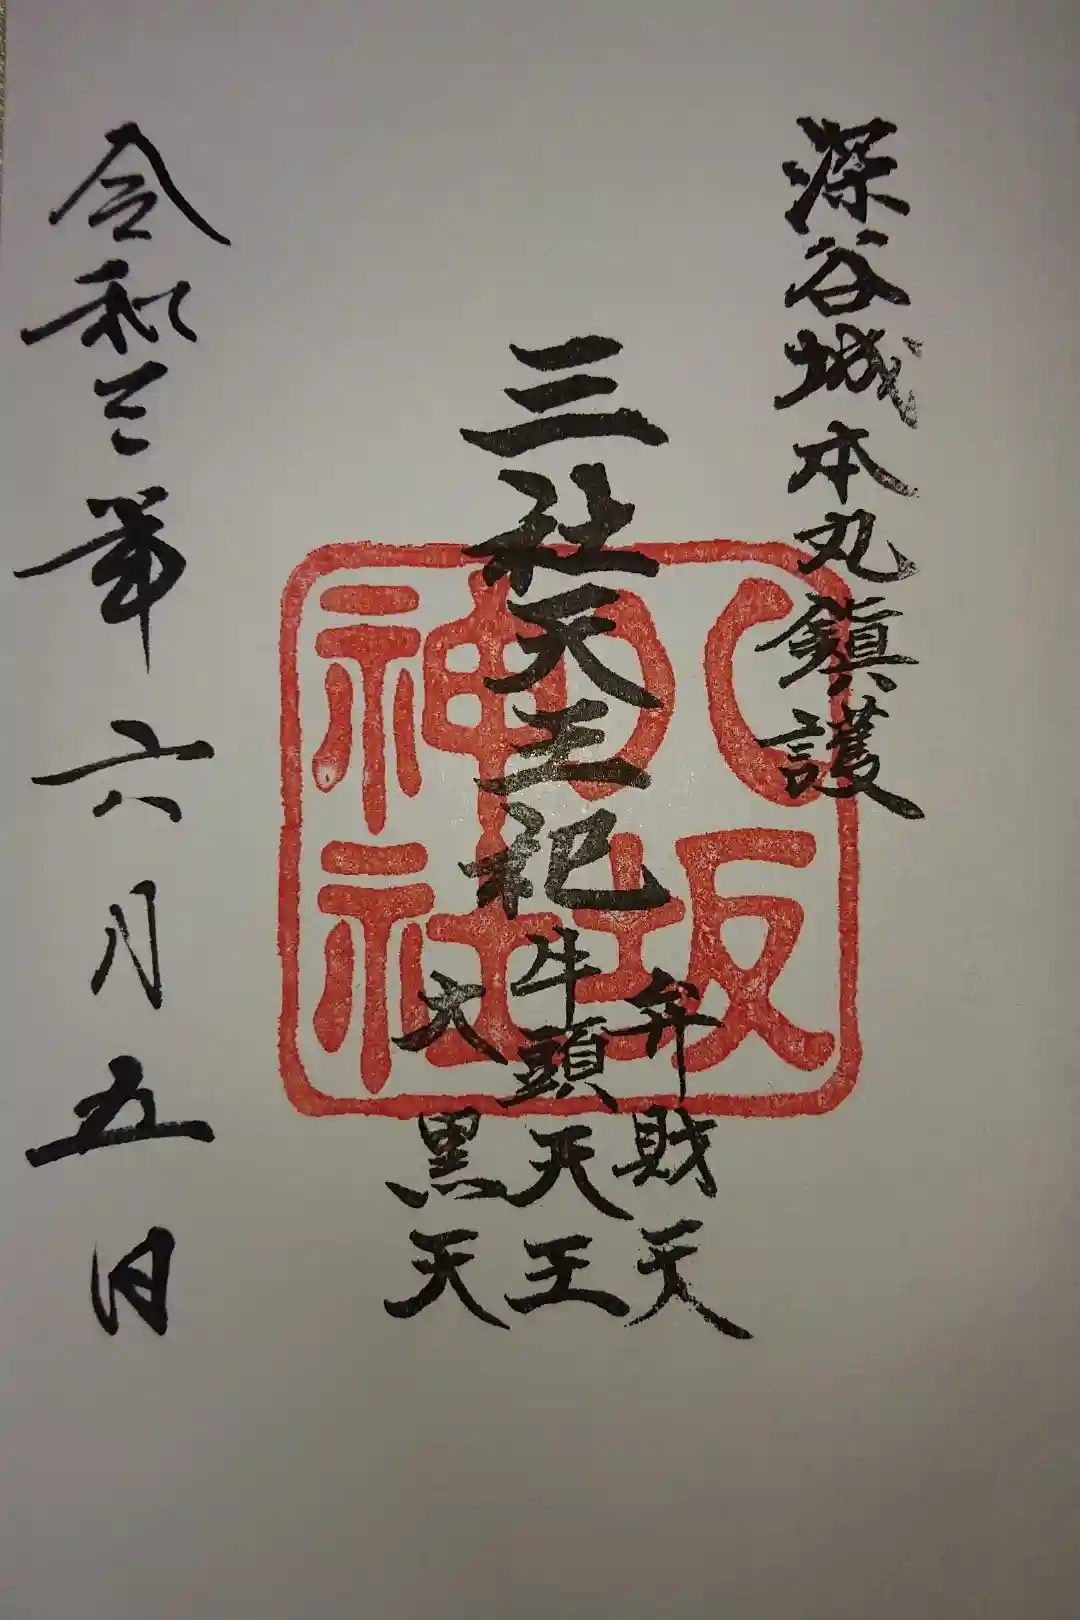 深谷城本丸鎮護
三社天王祀
弁財天
牛頭天王
大黒天
八坂
神社
令和三年六月五日